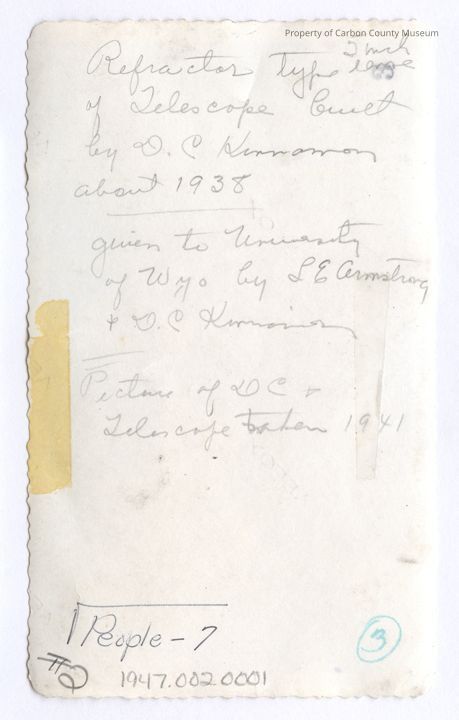 Property of Carbon County Museum
Refractor type 3 inch
lense
of Telescope built
by D. C Kinnamon
about 1938
given to University
of Wyo by L E Armstrong
+ D. C Kinnamon
Picture of D C +
Telescope taken 1941
People - 7
3
#2
1947.002.0001